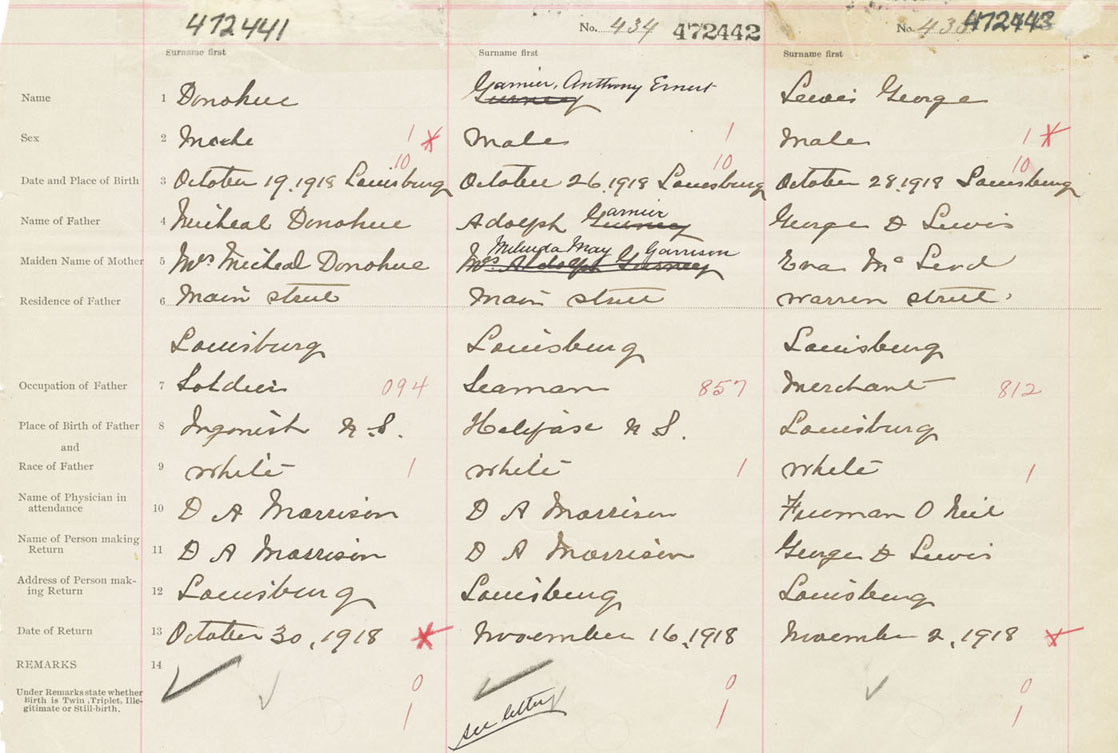 472441 No. 434 472442 No. 435 472443
Surname first Surname first Surname first
Name 1 Donohue Garnier, Anthony Ernest Lewis George
Gurney
Sex 2 Male 1 x Male 1 Male 1 x
10 10 10
Date and Place of Birth 3 October 19, 1918 Louisburg October 26, 1918 Louisburg October 28, 1918 Louisburg
Name of Father 4 Micheal Donohue Adolph Gurney Garnier George D Lewis
Melinda May Garrison
Maiden Name of Mother 5 Mrs Micheal Donohue Mrs Adolph Gurney Eva Mc Leod
Residence of Father 6 Main street Main street Warren street
Louisburg Louisburg Louisburg
Occupation of Father 7 Soldier 094 Seaman 857 Merchant 812
Place of Birth of Father 8 Ingonish N.S. Halifax N S. Louisburg
and
Race of Father 9 White 1 White 1 White 1
Name of Physician in
attendance 10 D A Morrison D A Morrison Freeman O Neil
Name of Person making
Return 11 D A Morrison D A Morrison George D Lewis
Address of Person mak-
ing Return 12 Louisburg Louisburg Louisburg
Date of Return 13 October 30, 1918 x November 16, 1918 November 2, 1918 x
REMARKS 14
Under Remarks state whether 0 0 0
Birth is Twin, Triplet, Ille-
gitimate or Still-birth. 1 see letter 1 1